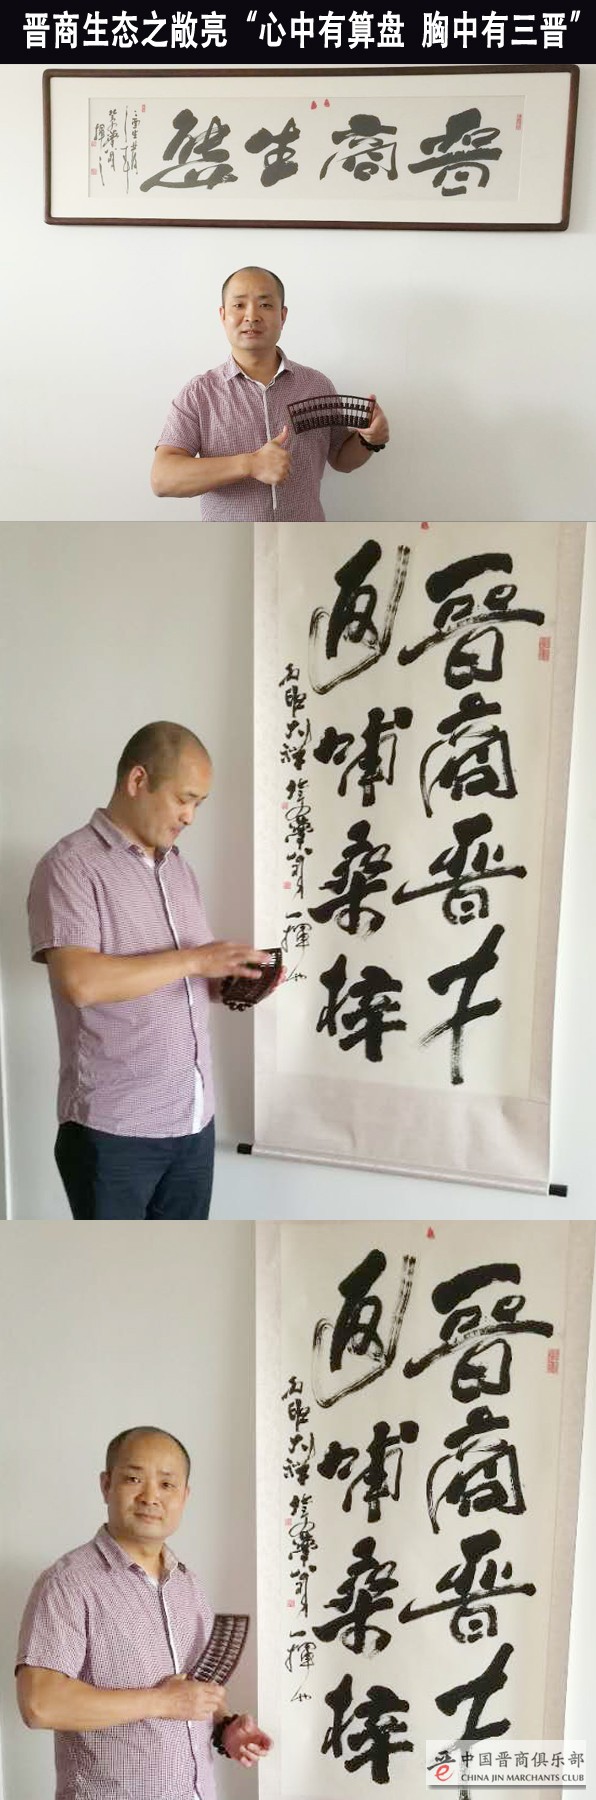 晋商生态之敞亮“心中有算盘 胸中有三晋”
晉商生態
晉商晋才
返哺桑梓
晉商晋才
返哺桑梓
中国晋商俱乐部
CHINA JIN MARCHANTS CLUB